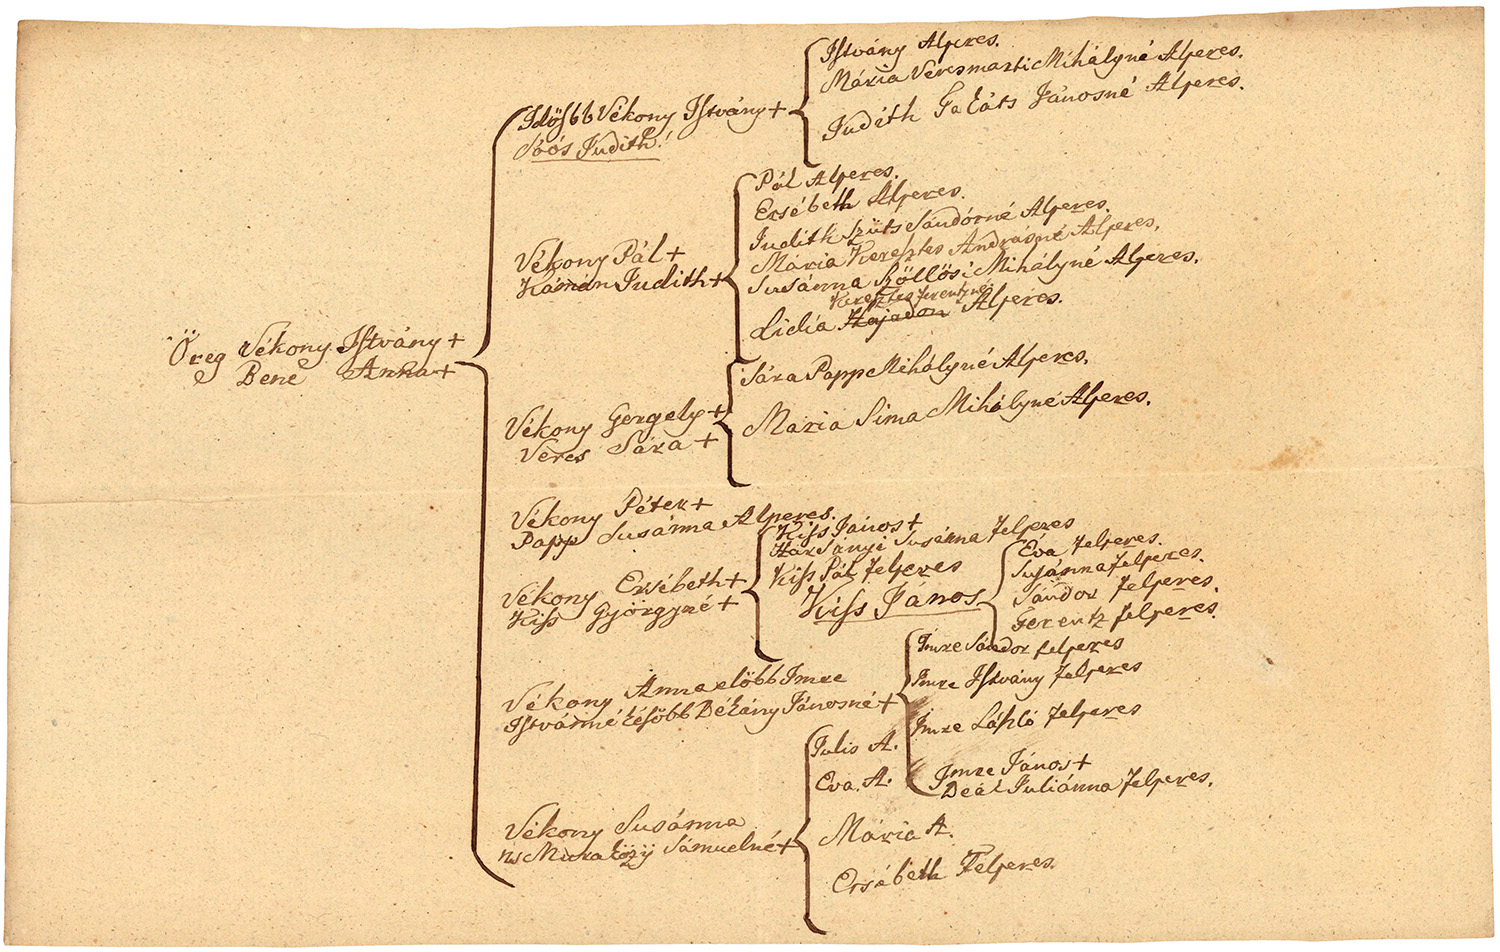 Öreg Vékony Istvány +
Bene Anna +
Idősbb Vékony Istvány +
Soós Judith!
Istvány Alperes.
Mária Veresmarti Mihályné Alperes.
Judith Takáts Jánosné Alperes.
Vékony Pál +
Kámán Judith +
Pál Alperes.
Ersébeth Alperes.
Judith Szüts Sándorné Alperes.
Mária Keresztes Andrásné Alperes.
Susánna Szőllősi Mihályné Alperes.
Keresztes Ferentzné
Lidia Hajadon Alperes.
Vékony Gergely +
Veres Sára +
Sára Papp Mihályné Alperes.
Mária Sima Mihályné Alperes.
Vékony Péter +
Papp Susánna Alperes.
Vékony Ersébeth +
Kiss Györgyné +
Kiss János +
Harsányi Susánna felperes
Kiss Pál felperes
Kiss János
Éva felperes.
Susánna felperes.
Sándor felperes.
Ferentz felperes.
Vékony Anna előbb Imre
Istvánné késöbb Békány Jánosné +
Imre Sándor felperes
Imre Istvány felperes
Imre László felperes
Imre János +
Deák Juliánna felperes.
Vékony Susánna
ns Muraközÿ Sámuelné +
Julis A.
Eva. A.
Mária A.
Ersébeth Felperes.